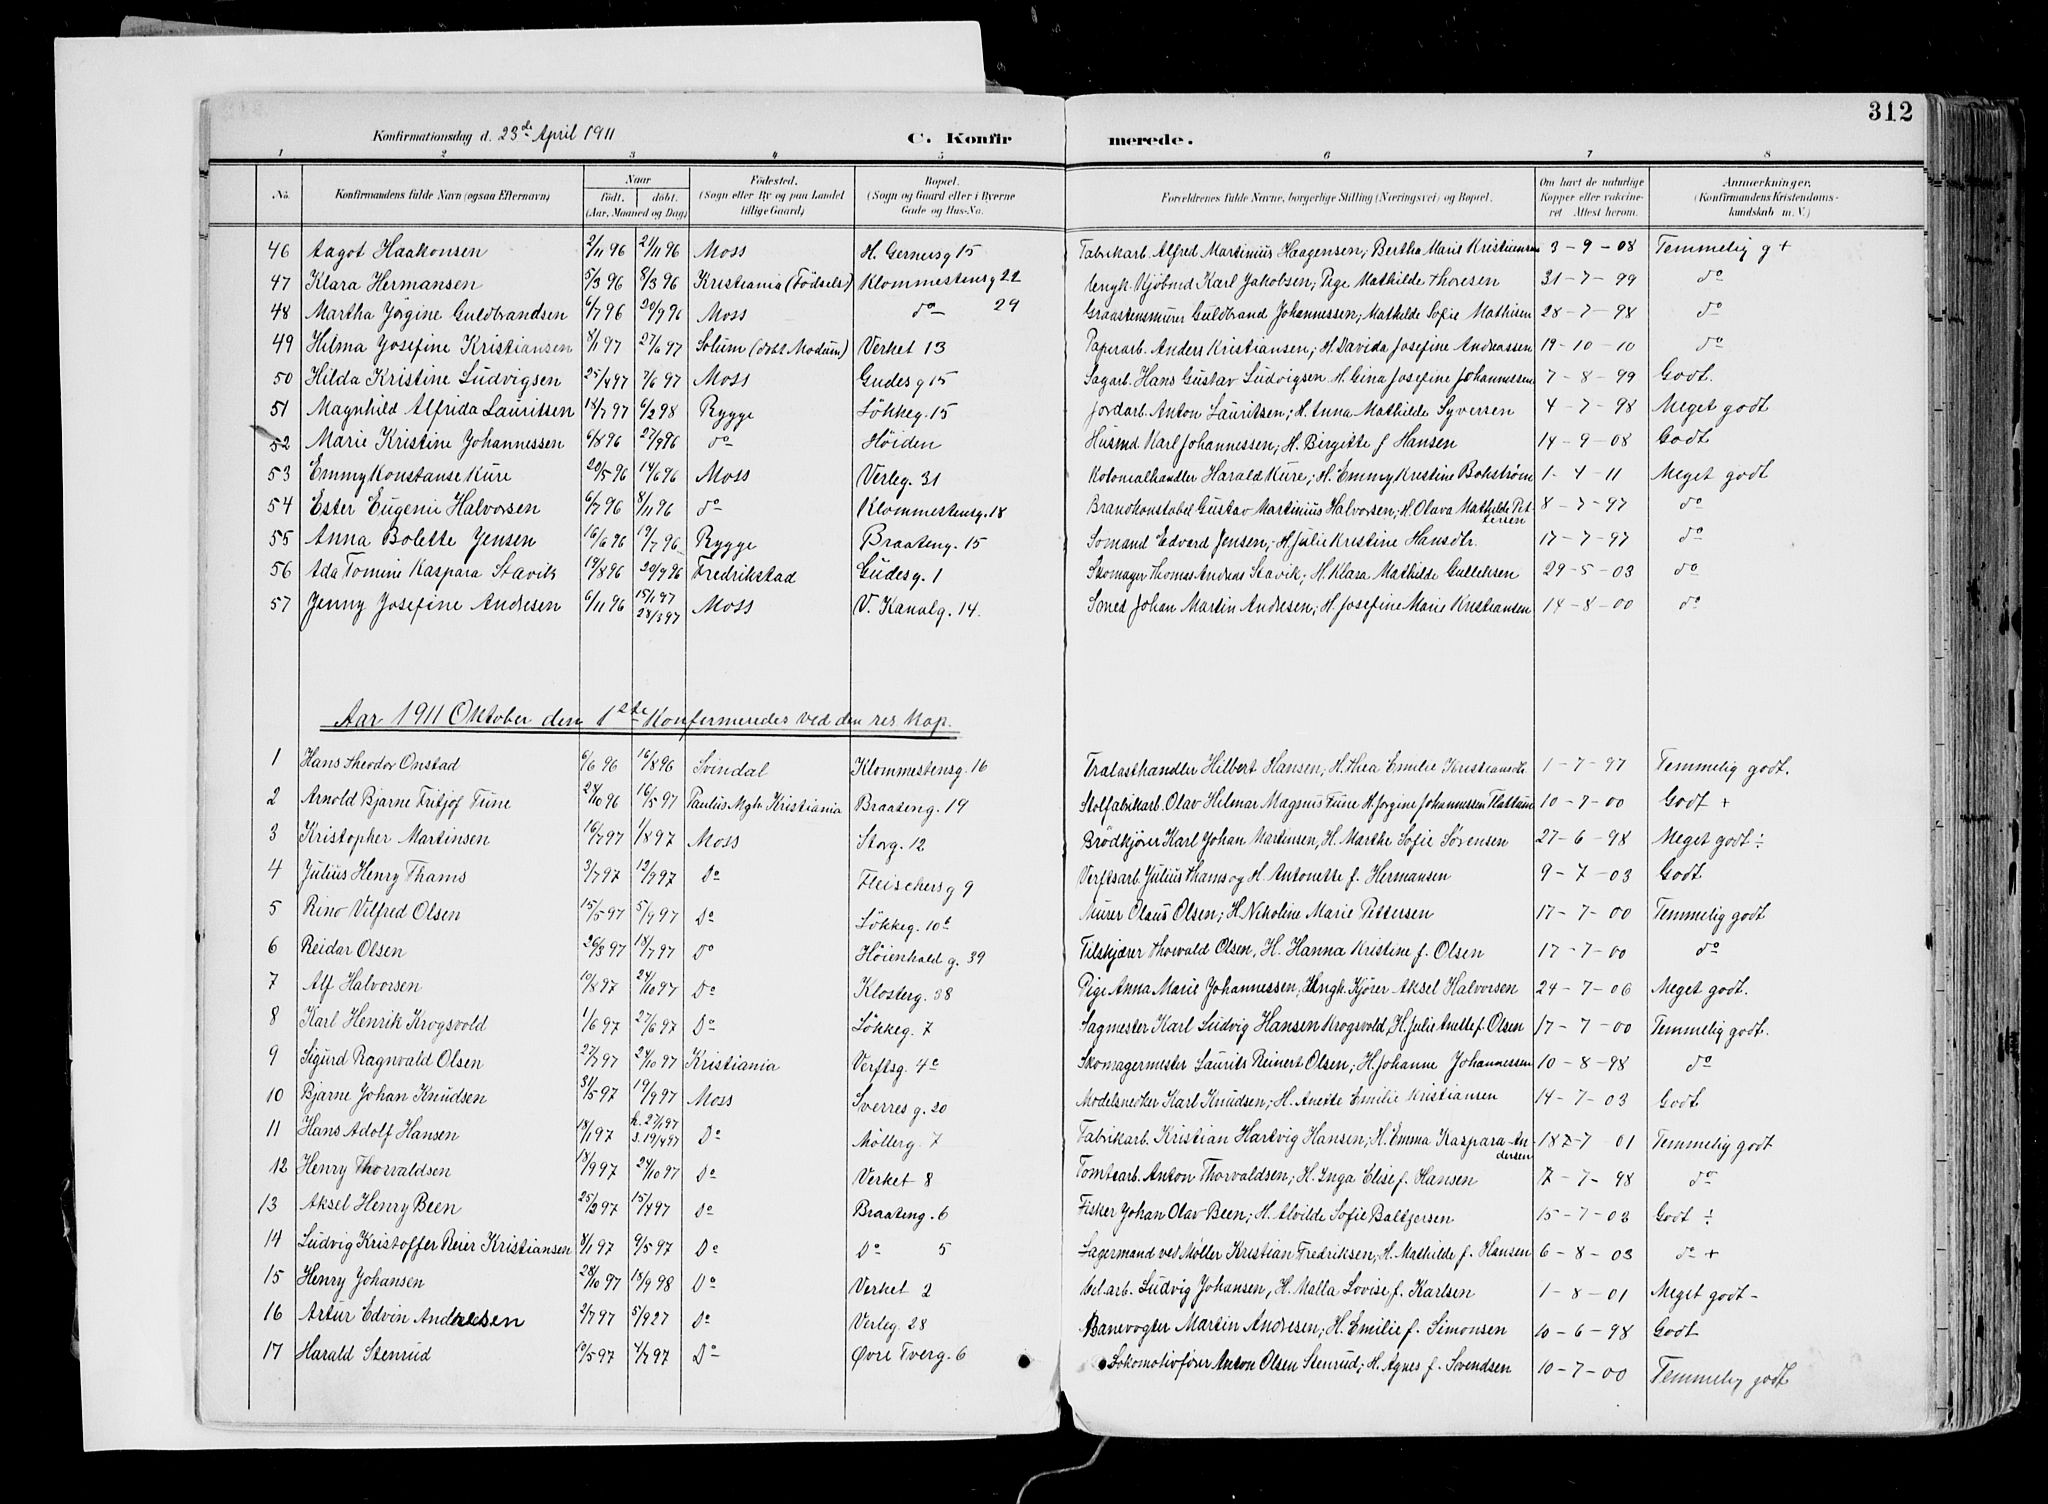 312
Konfirmationsdag d. 23de April 1911 C. Konfir merede.
1 2 3 4 5 6 7 8
No. Konfirmandens fulde Navn (ogsaa Efternavn) Naar født. døbt. (Aar, Maaned og Dag) Fødested. (Sogn eller By og paa Landet tillige Gaard) Bopæl. (Sogn og Gaard eller i Byerne Gade og Hus-No. Forældrenes fulde Navne, borgerlige Stilling (Næringsvei) og Bopæl. Om havt de naturlige Kopper eller vaccineret Attest herom. Anmærkninger. (Konfirmandens Kristendomskundskab m. V.)
46 Aagot Haakonsen 2/11 96 21/11 96 Moss H. Gernersg 15 Fabrikarb. Alfred Martinius Haagensen; Bertha Marie Kristiansen 3-9-08 Temmelig g +
47 Klara Hermansen 5/3 96 8/3 96 Kristiania (Fødsels) Klommestensg 22 Ungk. Kjøbmd Karl Jakobsen; Pige Mathilde Thoresen 31-7-99 do
48 Martha Jørgine Guldbrandsen 6/7 96 20/9 96 Moss do 29 Graastensmurer Guldbrand Johannessen; Mathilde Sofie Mathisen 28-7-98 do
49 Hilma Josefine Kristiansen 8/1 97 27/6 97 Solum (døbt Modum) Verket 13 Papirarb. Anders Kristiansen; H. Davida Josefine Andreassen 19-10-10 do
50 Hilda Kristine Ludvigsen 25/4 97 7/6 97 Moss Gudesg 15 Sagarb. Hans Gustav Ludvigsen. H. Gina Josefine Johannessen 7-8-99 Godt.
51 Magnhild Alfrida Lauritsen 18/7 97 6/2 98 Rygge Løkkeg. 15 Jordarb. Anton Lauritsen; H. Anna Mathilde Syversen 4-7-98 Meget godt
52 Marie Kristine Johannessen 6/8 96 27/9 96 do Høiden Husmd Karl Johannessen; H. Birgitte f. Hansen 14-9-08 Godt
53 Emmy Konstanse Kure 20/5 96 14/6 96 Moss Verleg. 31 Kolonialhandler Harald Kure; H. Emmy Kristine Bohstrøm 1-4-11 Meget godt
54 Ester Eugenie Halvorsen 6/7 96 8/11 96 do Klommestensg. 18 Brandkonstabel Gustav Martinius Halvorsen; H. Olava Mathilde Pettersen 8-7-97 do
55 Anna Bolette Jensen 16/6 96 19/7 96 Rygge Braateng. 15 Sømand Edvard Jensen; H. Julie Kristine Hansdtr. 17-7-97 do
56 Ada Tomine Kaspara Stavik 19/8 96 20/9 96 Fredrikstad Gudesg. 1 Skomager Thomas Andreas Stavik; H. Klara Mathilde Gulliksen 29-5-03 do
57 Jenny Josefine Andresen 6/11 96 15/1 97 28/3 97 Moss V. Kanalg. 14. Smed Johan Martin Andresen; H. Josefine Marie Kristiansen 14-8-00 do
Aar 1911 Oktober den 1ste Konfirmeredes ved den res. Kap.
1 Hans Theodor Onstad 6/6 96 16/8 96 Svindal Klommestensg. 16 Trælasthandler Hilbert Hansen, H. Thea Emilie Kristiansdt. 1-7-97 Temmelig godt.
2 Arnold Bjarne Fritjof Tune 24/10 96 16/5 97 Paulus Mgh. Kristiania Braateng. 19 Stolfabrikarb. Olav Hilmar Magnus Tune H. Jørgine Johannessen Flattum 10-7-00 Godt +
3 Kristopher Martinsen 16/7 97 1/8 97 Moss Storg. 12 Brødkjører Karl Johan Martinsen, H. Marthe Sofie Sørensen 27-6-98 Meget godt ÷
4 Julius Henry Thams 3/7 97 12/9 97 Do Fleischersg 9 Verftsarb. Julius Thams og H. Antonette f. Hermansen 9-7-03 Godt
5 Rino Vilfred Olsen 15/5 97 5/9 97 Do Løkkeg. 10b Murer Olaus Olsen; H. Nikoline Marie Pettersen 17-7-00 Temmelig godt
6 Reidar Olsen 26/3 97 18/7 97 Do Høienhald g. 39 Tilskjærer Thorvald Olsen, H. Hanna Kristine f. Olsen 17-7-00 do
7 Alf Halvorsen 10/8 97 24/10 97 Do Klosterg. 38 Pige Anna Marie Johannessen, Ungk. Kjører Aksel Halvorsen 24-7-06 Meget godt.
8 Karl Henrik Krogsvold 1/6 97 27/6 97 Do Løkkeg. 7 Sagmester Karl Ludvig Hansen Krogsvold, H. Julie Anette f. Olsen 17-7-00 Temmelig godt.
9 Sigurd Ragnvald Olsen 27/7 97 24/10 97 Kristiania Verftsg. 4c Skomagermester Laurits Reinert Olsen; H. Johanne Johannessen 10-8-98 do
10 Bjarne Johan Knudsen 31/5 97 19/9 97 Moss Sverres g. 20 Modelsnedker Karl Knudsen; H. Anette Emilie Kristiansen 14-7-03 Godt
11 Hans Adolf Hansen 18/1 97 h. 27/1 97 s. 19/4 97 Do Møllerg. 7 Fabrikarb. Kristian Hartvig Hansen; H. Emma Kaspara Andersen 18-7-01 Temmelig godt
12 Henry Thorvaldsen 18/9 97 24/10 97 Do Verket 8 Tomtearb. Anton Thorvaldsen; H. Inga Elise f. Hansen 7-7-98 do
13 Aksel Henry Been 25/2 97 15/4 97 Do Braateng. 6 Fisker Johan Olav Been; H. Alvilde Sofie Baltzersen 15-7-03 Godt ÷
14 Ludvig Kristoffer Reier Kristiansen 8/1 97 9/5 97 Do Do 5 Lagermand ved Møller Kristian Fredriksen; H. Mathilde f. Hansen 6-8-03 do +
15 Henry Johansen 28/10 97 18/9 98 Do Verket 2 Cel.arb. Ludvig Johansen, H. Malla Lovise f. Karlsen 1-8-01 Meget godt -
16 Artur Edvin Andresen 2/7 97 5/9 27 Do Verleg. 28 Banevogter Martin Andresen; H. Emilie f. Simonsen 10-6-98 Godt
17 Harald Stenrud 10/5 97 4/7 97 Do Øvre Tverg. 6 Lokomotivfører Anton Olsen Stenrud; H. Agnes f. Svendsen 10-7-00 Temmelig godt